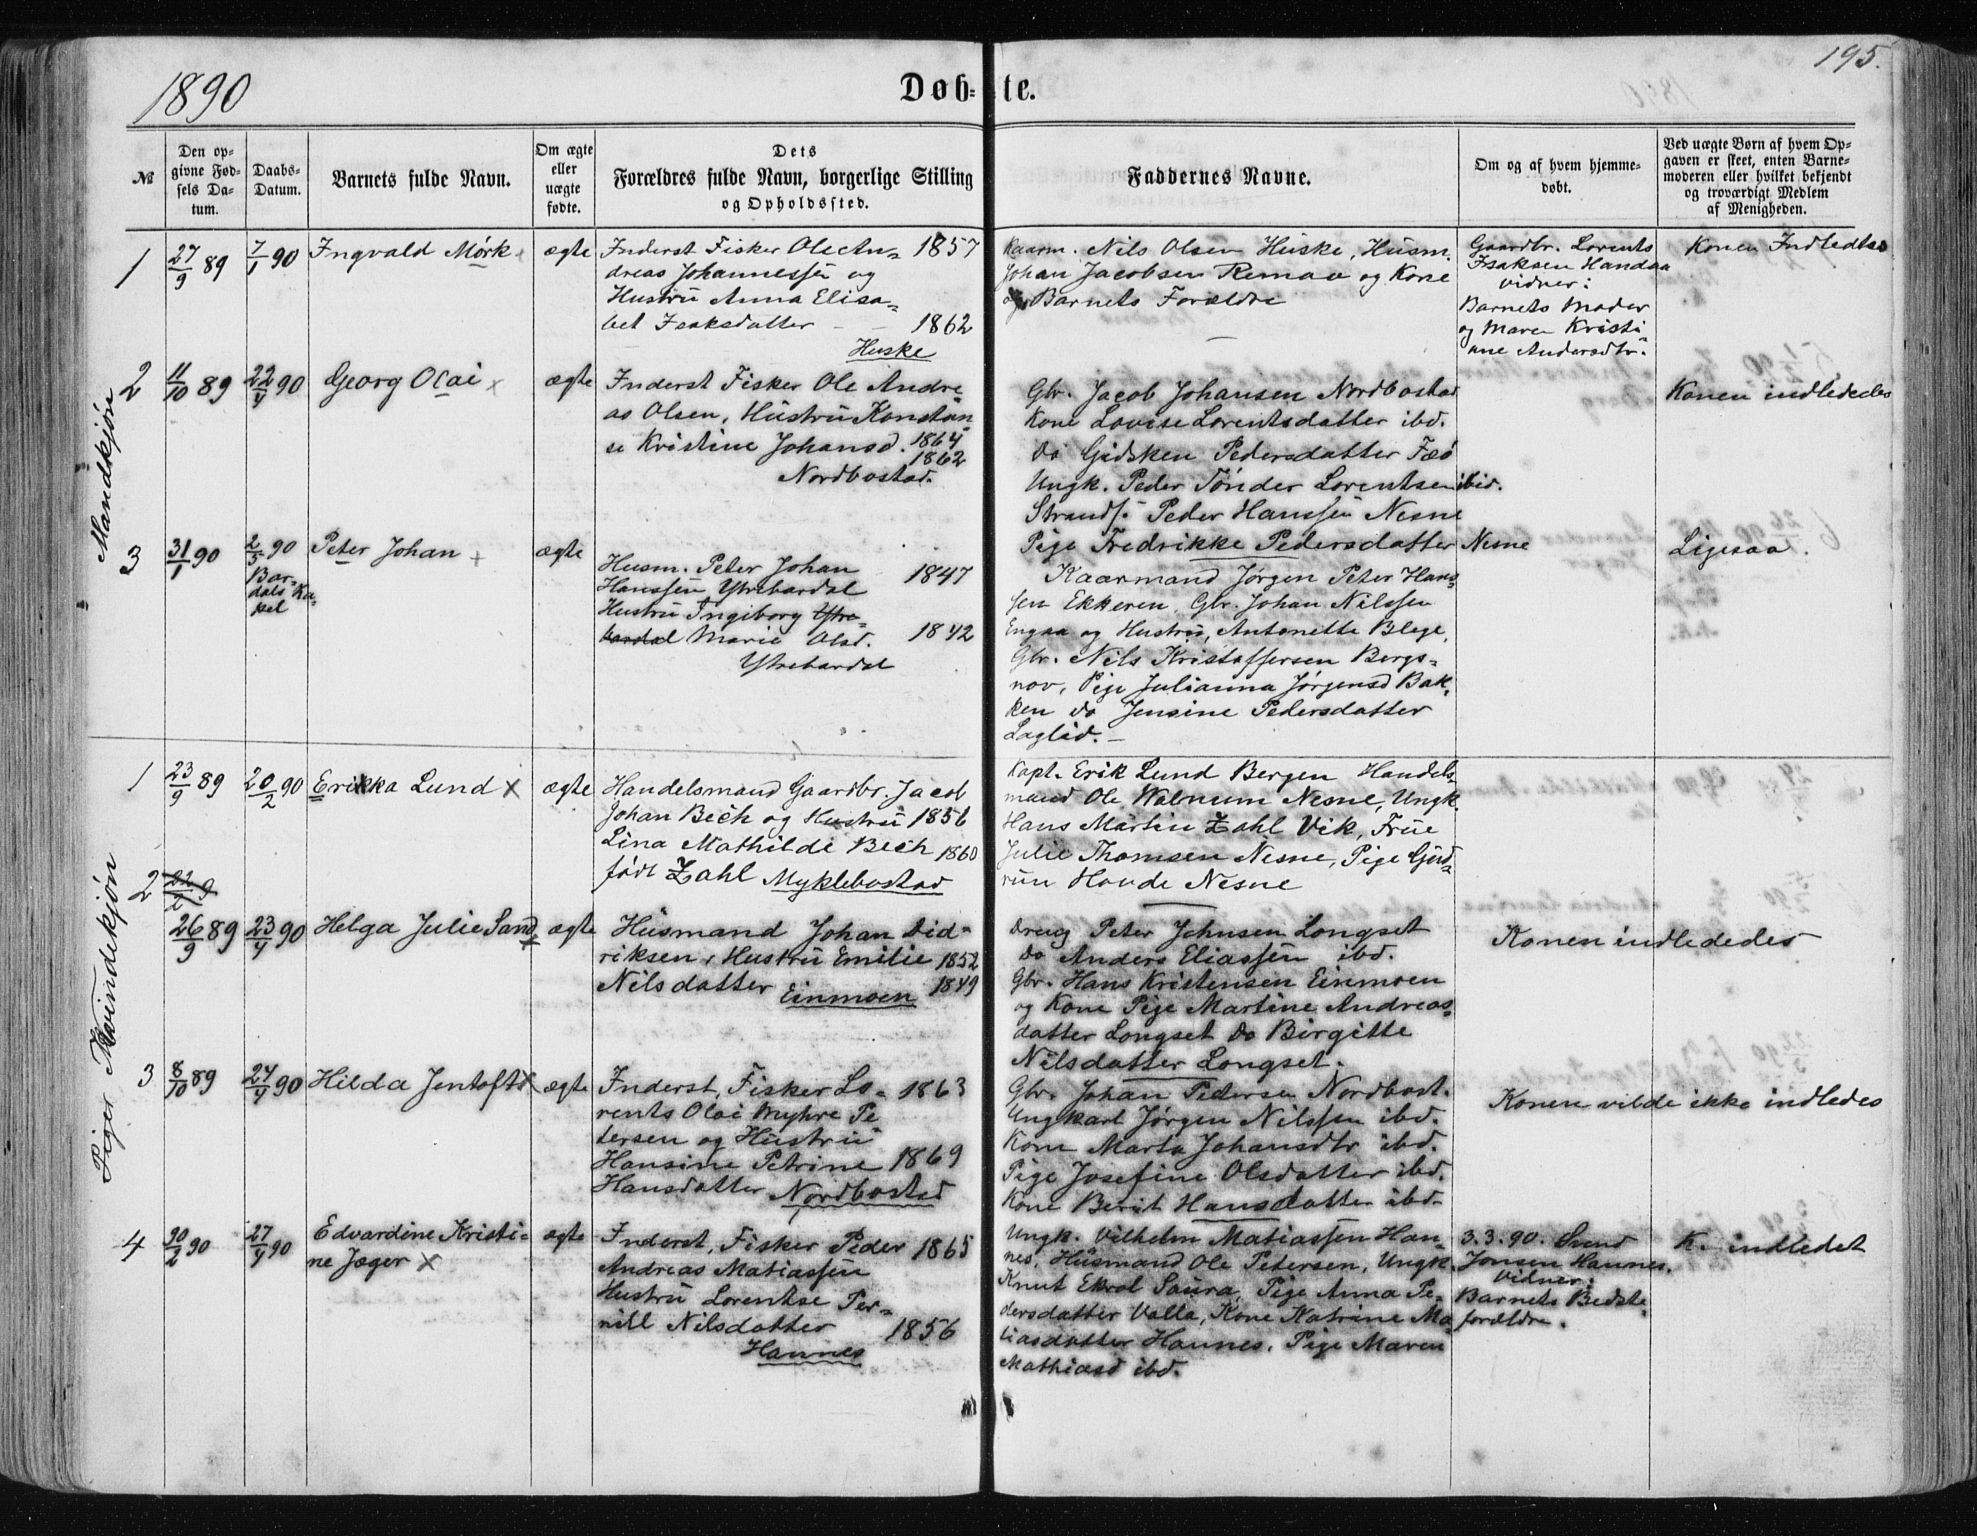 1890
Døb-te.
195.
№
Den opgivne Fødsels Datum.
Daabs-Datum.
Barnets fulde Navn.
Om ægte eller uægte fødte.
Dets Forældres fulde Navn, borgerlige Stilling og Opholdssted.
Faddernes Navne.
Om og af hvem hjemmedøbt.
Ved uægte Børn af hvem Opgaven er skeet, enten Barnemoderen eller hvilket bekjendt og troværdigt Medlem af Menigheden.
Mandkjøn
1
27/9 89
7/1 90
Ingvald Mørk
ægte
Inderst Fisker Ole An= 1857
dreas Johannessen og
Hustru Anna Elisa=
bet Isaksdatter - - 1862
Huske
Kaarm. Nils Olsen Huske, Husm.
Johan Jacobsen Remaa og Kone
og Barnets Forældre
Gaardbr. Lorents
Isaksen Handaa
vidner:
Barnets Moder
og Maren Kristi
ane Andersdtr.
Konen Indledtes
2
11/10 89
22/4 90
Georg Olai
ægte
Inderst Fisker Ole Andre
as Olsen, Hustru Konstan
se Kristine Johansd. 1864
1862
Nordbostad.
Gbr. Jacob Johansen Nordbostad
Kone Lovise Lorentsdatter ibd.
Do Gidsken Pedersdatter Fæø
Ungk. Peder Tønder Lorentsen ibid.
Strands. Peder Hanssen Nesne
Pige Fredrikke Pedersdatter Nesne
Konen indlededes
3
31/1 90
2/5 90
Bar=
dals Ka=
pel
Peter Johan
ægte
Husm. Peter Johan
Hanssen Ytrebardal 1847
Hustru Ingiborg Ytre-
bardal Marie Olsd. 1842
Ytrebardal
Kaarmand Jørgen Peter Hans=
sen Ekkeren, Gbr. Johan Nilssen
Engaa og Hustru, Antonette Blege,
Gbr. Nils Kristoffersen Bergs=
nov, Pige Julianna Jørgensd Bak=
ken do Jensine Pedersdatter
Laglid.
Ligesaa.
Piger Kvindekjøn
1
23/9 89
20/2 90
Erikka Lund
ægte
Handelsmand Gaardbr. Jacob
Johan Bech og Hustru 1856
Lina Mathilde Bech 1860
født Zahl Myklebostad
Kapt. Erik Lund Bergen Handels=
mand Ole Walnum Nesne, Ungk.
Hans Martin Zahl Vik, Frue
Julie Thomsen Nesne, Pige Gud=
run Hovde Nesne
2
22/2 9
26/9 89
23/4 90
Helga Julie Sand
ægte
Husmand Johan Did=
riksen, Hustru Emilie 1852
Nilsdatter Einmoen 1849
Dreng Peter Johnsen Longset
Do Anders Eliassen ibd.
Gbr. Hans Kristensen Einmoen
og Kone Pige Martine Andreas=
datter Longset Do Birgitte
Nilsdatter Longset.
Konen indledédes
3
8/10 89
27/4 90
Hilda Jentoft
ægte
Inderst, Fisker Lo= 1863
rents Olai Myhre Pe
tersen og Hustru
Hansine Petrine 1869
Hansdatter Nordbostad
Gbr. Johan Pedersen Nordbost.
Ungkarl Jørgen Nilssen ibd.
Kone Marta Johansdtr ibd.
Pige Josefine Olsdatter ibd.
Kone Berit Hansdatter ibd.
Konen vilde ikke indledes
4
20/2 90
27/4 90
Edvardine Kristi=
ne Jæger
ægte
Inderst, Fisker Peder 1865
Andreas Matiassen
Hustru Lorentse Per=
nill Nilsdatter 1856
Hannes
Ungk. Vilhelm Matiassen Han=
nes, Husmand Ole Petersen, Ungk.
Knut Ekrol Saura, Pige Anna Pe=
dersdatter Valla, Kone Katrine Ma
tiasdatter Hannes, Pige Maren
Mathiasd ibd.
3.3.90. Svend
Jonsen Hannes.
vidner:
Barnets Bedste
forældre.
K. indledet